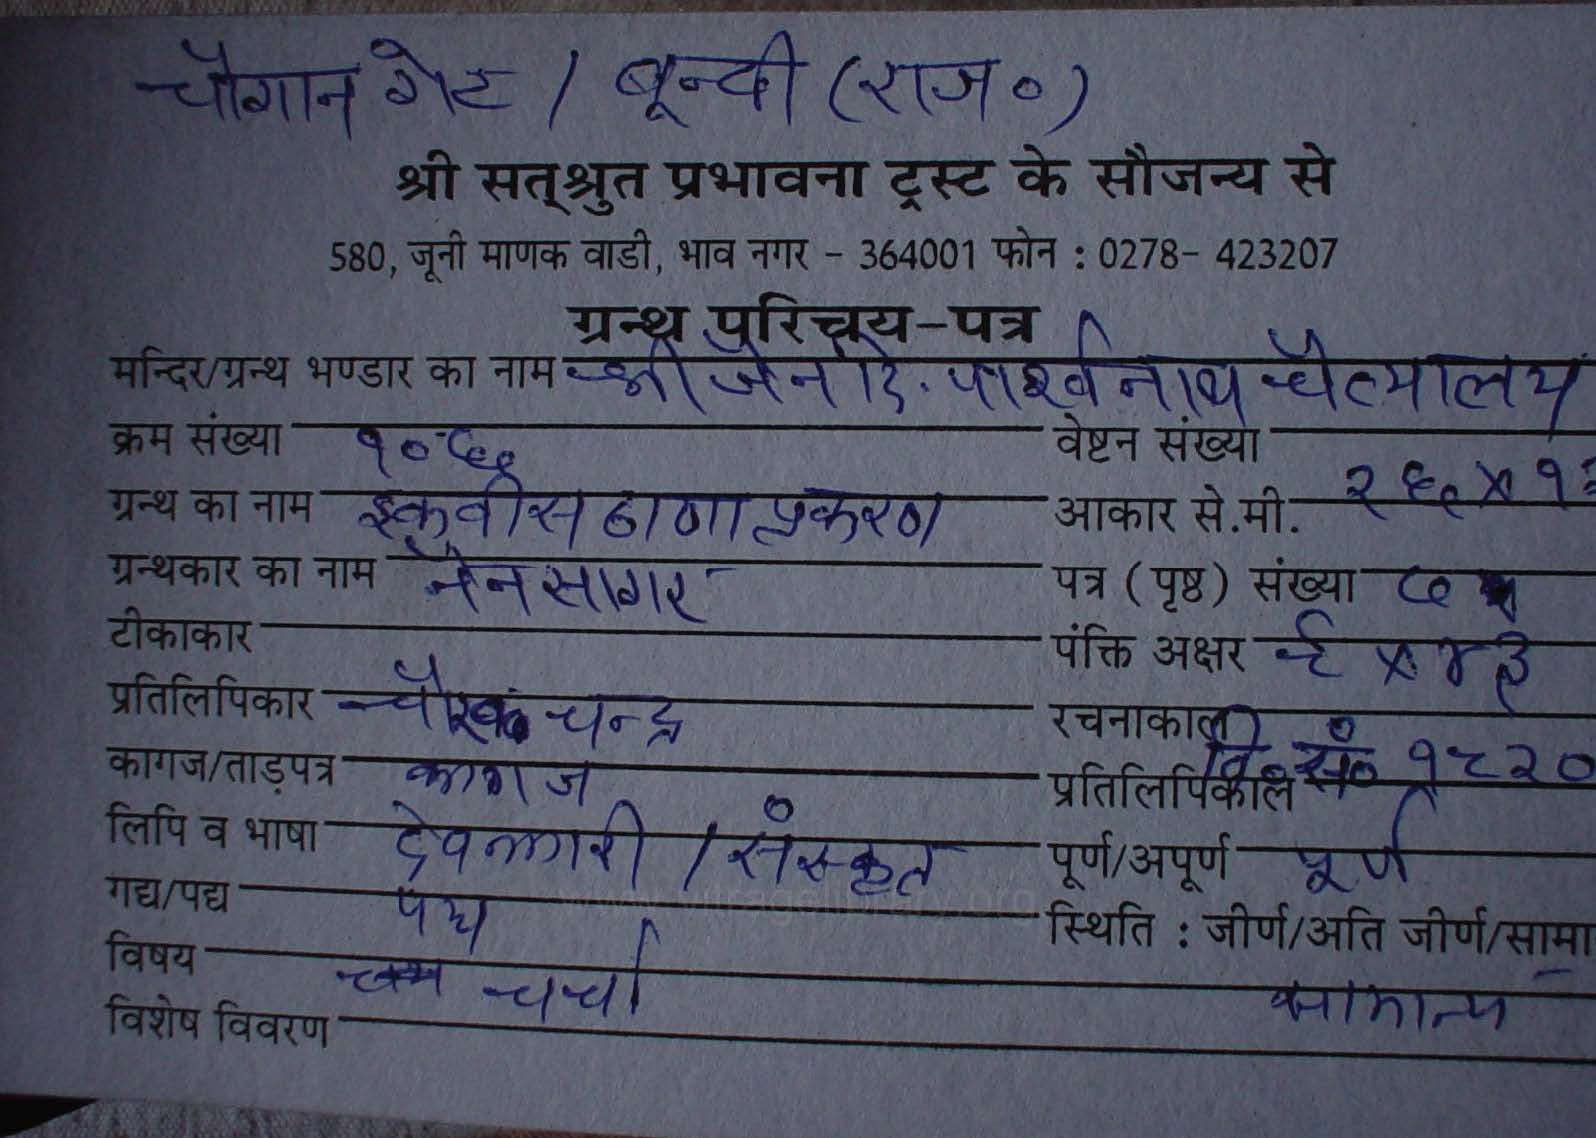 चौगान गेट / बून्दी (राज०)
श्री सत्श्रुत प्रभावना ट्रस्ट के सौजन्य से
580, जूनी माणक वाडी, भाव नगर - 364001 फोन : 0278- 423207
ग्रन्थ परिचय-पत्र
मन्दिर/ग्रन्थ भण्डार का नाम श्री जैन दि. पार्श्वनाथ चैत्यालय
क्रम संख्या वेष्टन संख्या
ग्रन्थ का नाम इकवीस ठाणा प्रकरण आकार से.मी. २६ X
ग्रन्थकार का नाम नैनसागर पत्र (पृष्ठ) संख्या
टीकाकार पंक्ति अक्षर
प्रतिलिपिकार चन्द्र रचनाकाल
कागज/ताड़पत्र कागज प्रतिलिपिकाल वि० सं०
लिपि व भाषा देवनागरी / संस्कृत पूर्ण/अपूर्ण पूर्ण
गद्य/पद्य पद्य स्थिति : जीर्ण/अति जीर्ण/सामा
विषय चर्चा सामान्य
विशेष विवरण